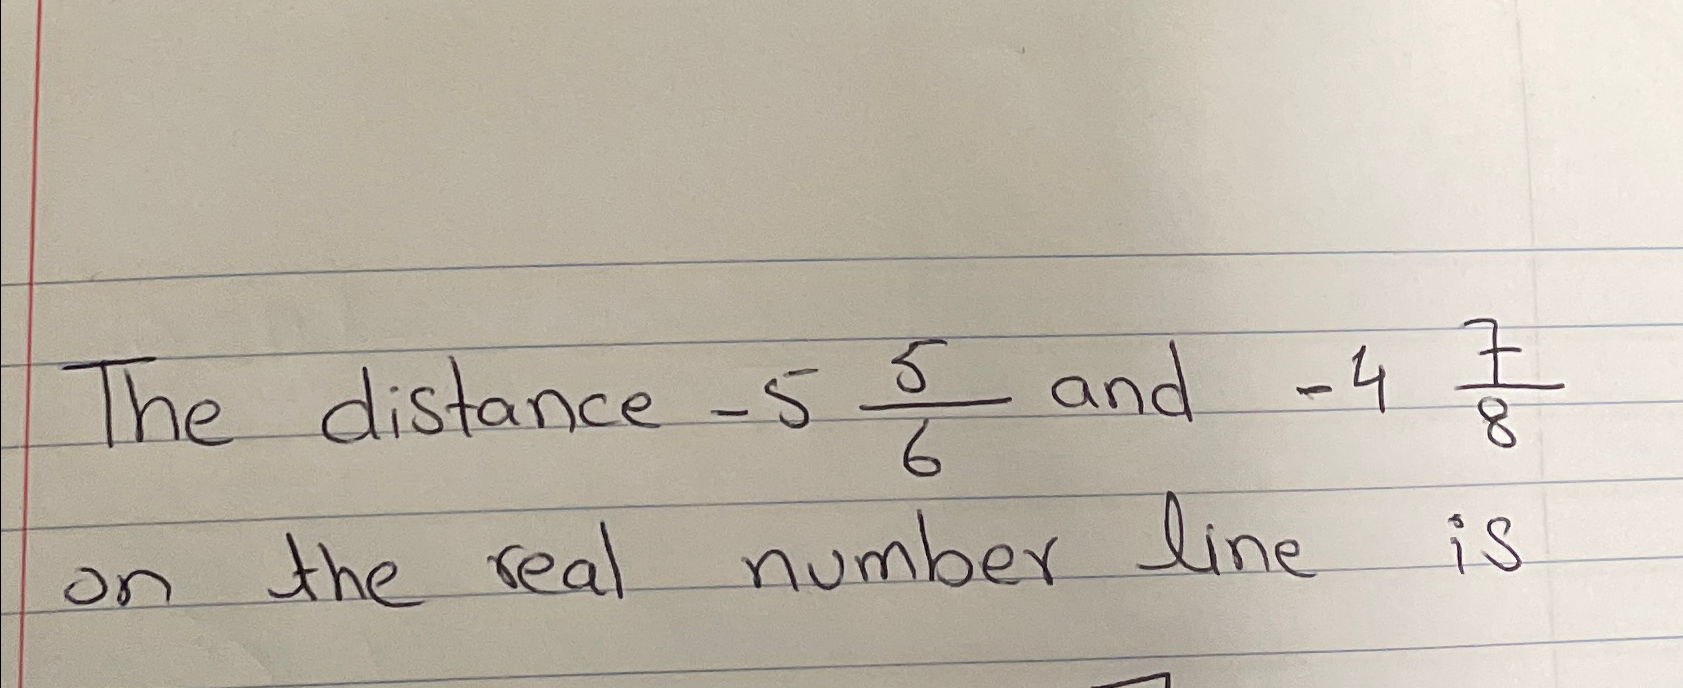 The distance -5 5/6 and -4 7/8
on the real number line is